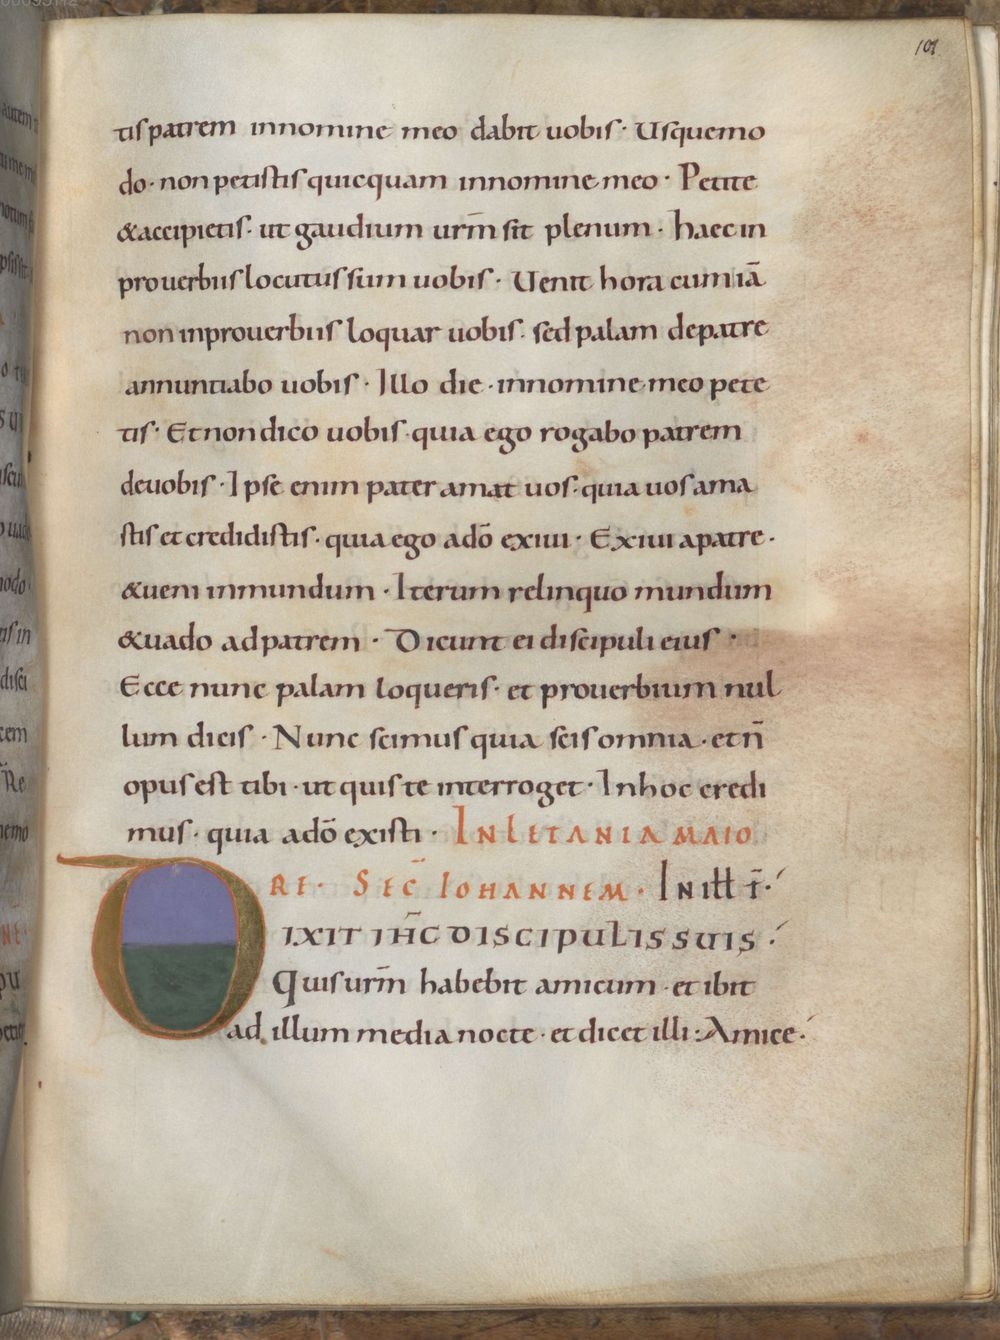 101
tis patrem innomine meo dabit uobis · Usquemo
do · non petistis quicquam innomine meo · Petite
&accipietis · ut gaudium urm̄ sit plenum · haec in
prouerbiis locutus sum uobis · Uenit hora cum iā
non inprouerbiis loquar uobis · sed palam depatre
annuntiabo uobis · Illo die · innomine meo pete
tis · Et non dico uobis · quia ego rogabo patrem
deuobis · Ipse enim pater amat uos · quia uos ama
stis et credidistis · quia ego adō exiui · Exiui apatre ·
&ueni inmundum · Iterum relinquo mundum
&uado adpatrem · Dicunt ei discipuli eius ·
Ecce nunc palam loqueris · et prouerbium nul
lum dicis · Nunc scimus quia scis omnia · et n̄
opus est tibi · ut quis te interroget · Inhoc credi
mus · quia adō existi · IN LETANIA MAIO
RE · SEC̄ IOHANNEM · IN ILL T̄ ·
DIXIT IHC̄ DISCIPULIS SUIS ·
Quis urm̄ habebit amicum · et ibit
ad illum media nocte · et dicet illi : Amice ·